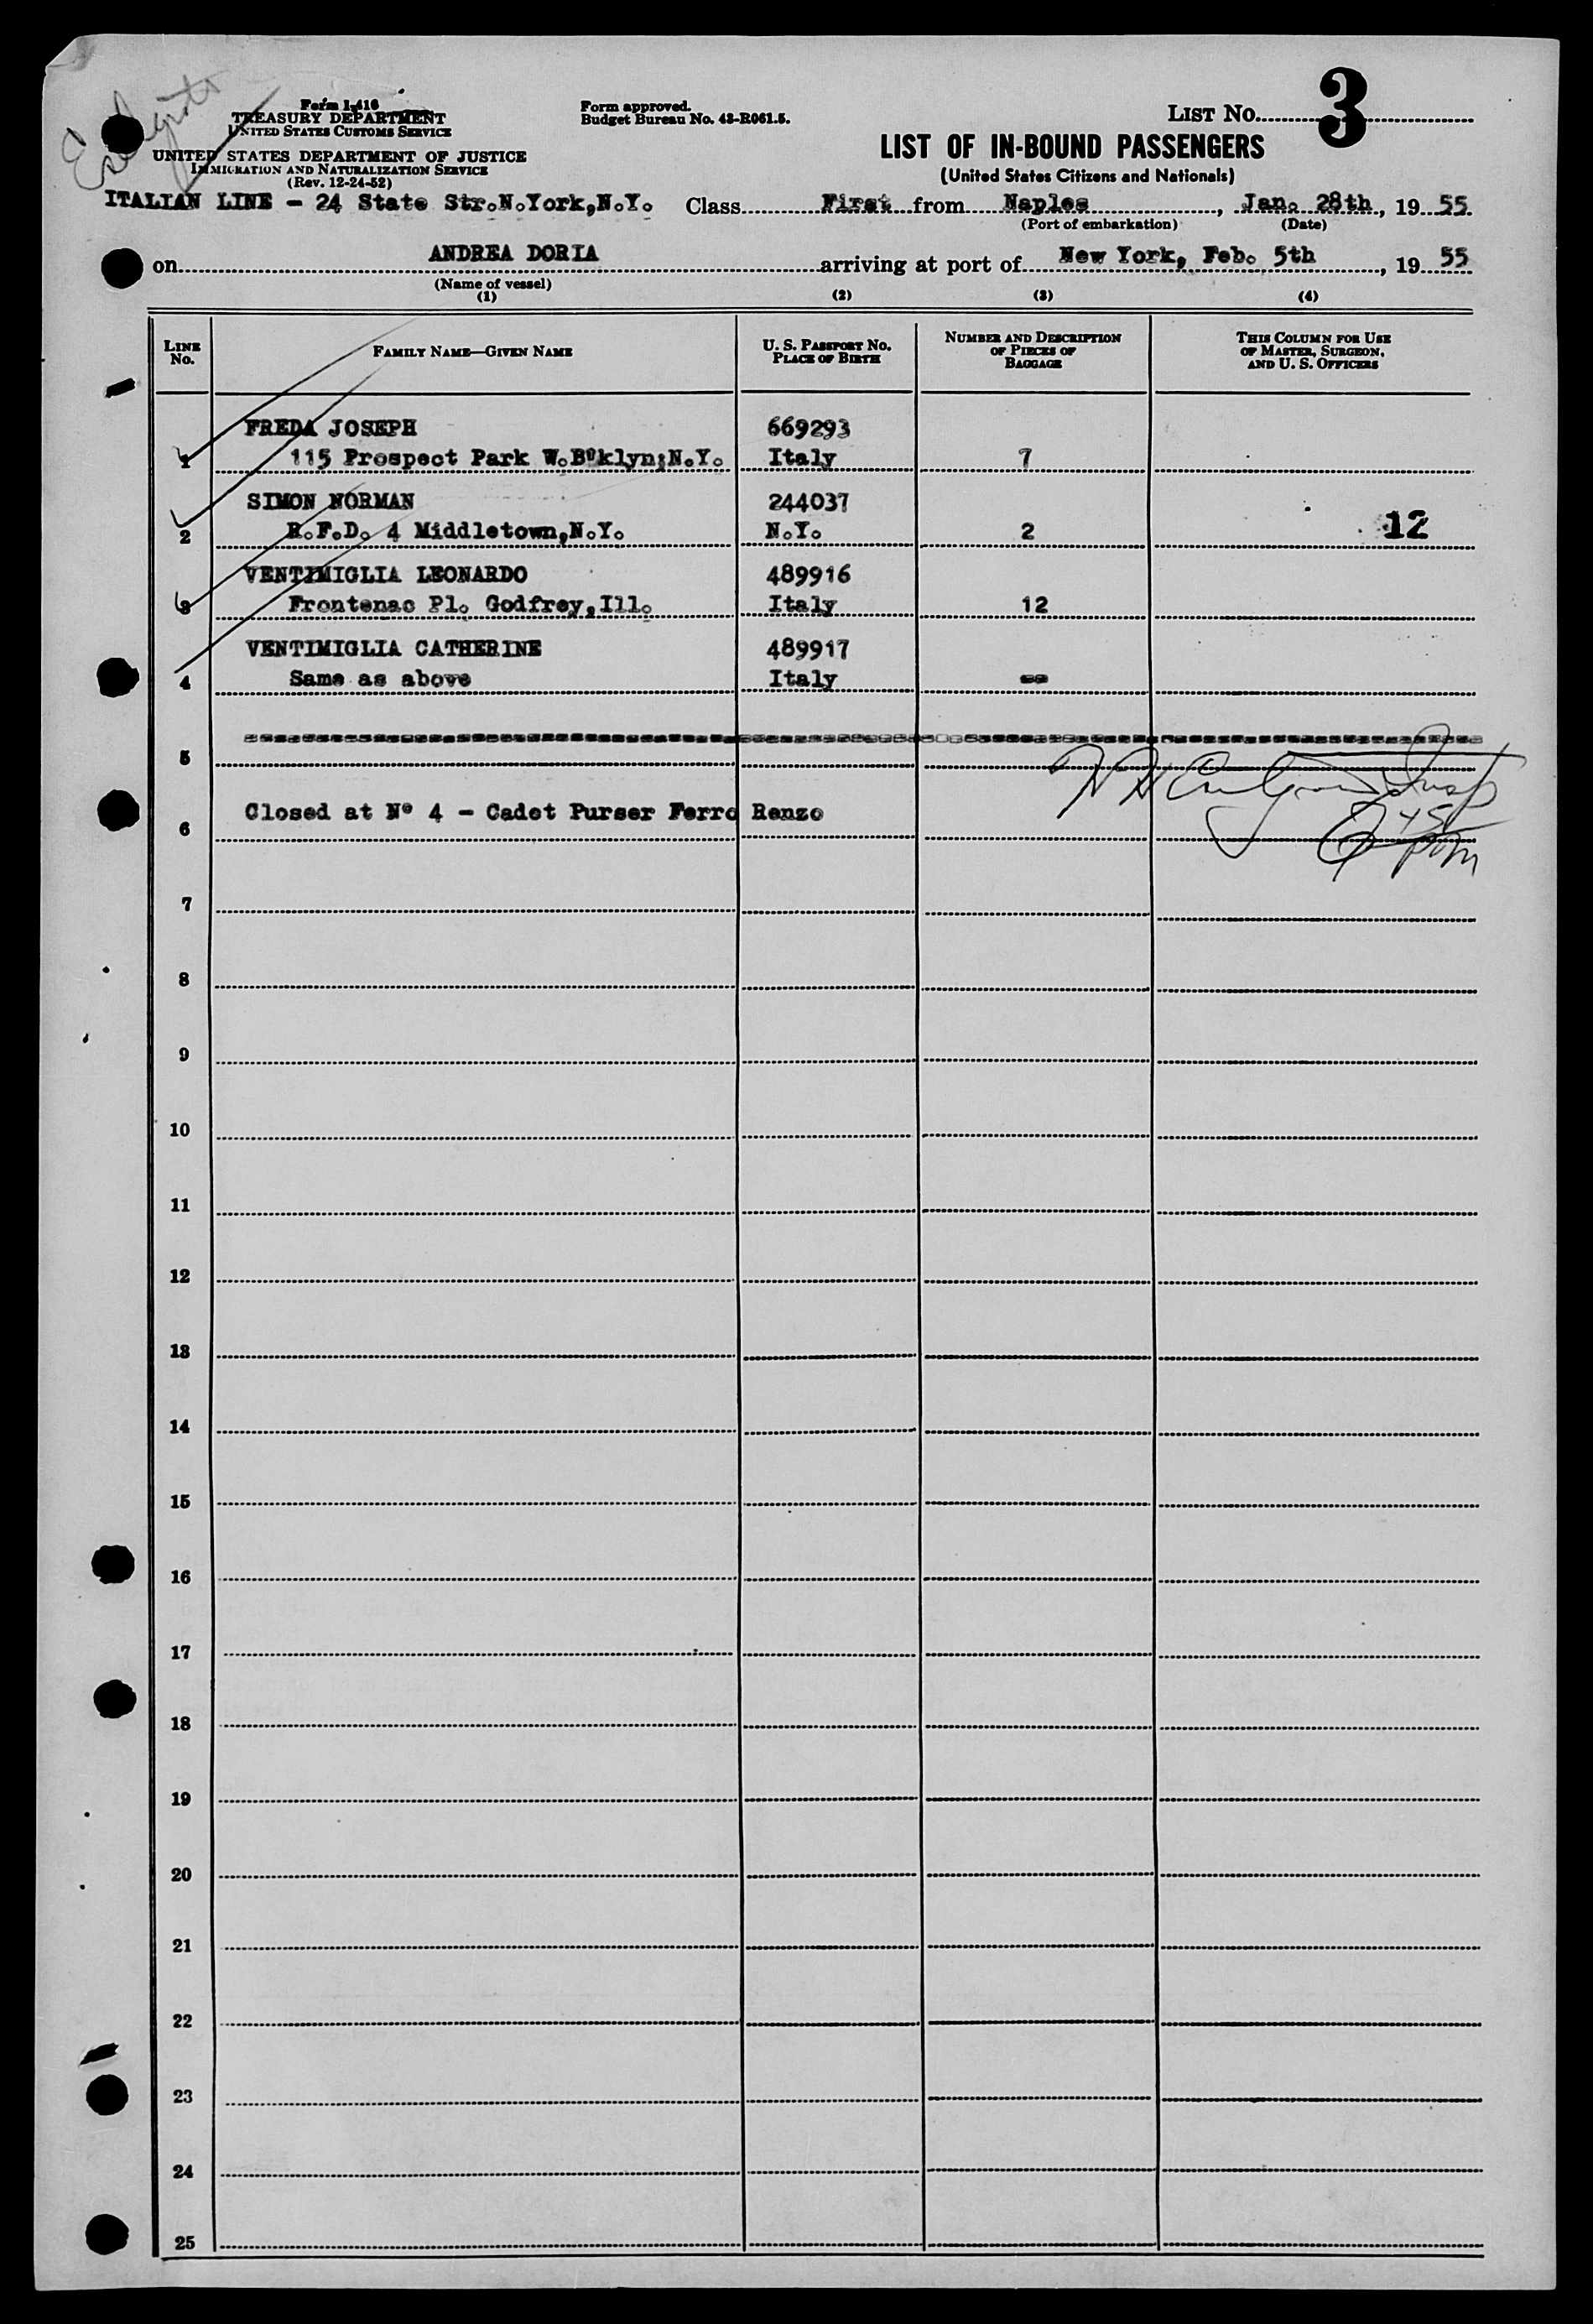 Form I-416
TREASURY DEPARTMENT
UNITED STATES CUSTOMS SERVICE
UNITED STATES DEPARTMENT OF JUSTICE
IMMIGRATION AND NATURALIZATION SERVICE
(Rev. 12-24-52)
Form approved.
Budget Bureau No. 43-R061.5.
LIST NO. 3
LIST OF IN-BOUND PASSENGERS
(United States Citizens and Nationals)
ITALIAN LINE - 24 State Str.N.York,N.Y. Class First from Naples, Jan. 28th, 19 55
(Port of embarkation) (Date)
on ANDREA DORIA arriving at port of New York, Feb. 5th, 19 55
(Name of vessel)
(1) (2) (3) (4)
LINE NO. FAMILY NAME—GIVEN NAME U. S. PASSPORT NO. PLACE OF BIRTH NUMBER AND DESCRIPTION OF PIECES OF BAGGAGE THIS COLUMN FOR USE OF MASTER, SURGEON, AND U. S. OFFICERS
FREDA JOSEPH 669293
1 115 Prospect Park W.B'klyn;N.Y. Italy 7
SIMON NORMAN 244037
2 R.F.D. 4 Middletown,N.Y. N.Y. 2 12
VENTIMIGLIA LEONARDO 489916
3 Frontenac Pl. Godfrey,Ill. Italy 12
VENTIMIGLIA CATHERINE 489917
4 Same as above Italy --
5
6 Closed at N° 4 - Cadet Purser Ferro Renzo
7
8
9
10
11
12
13
14
15
16
17
18
19
20
21
22
23
24
25